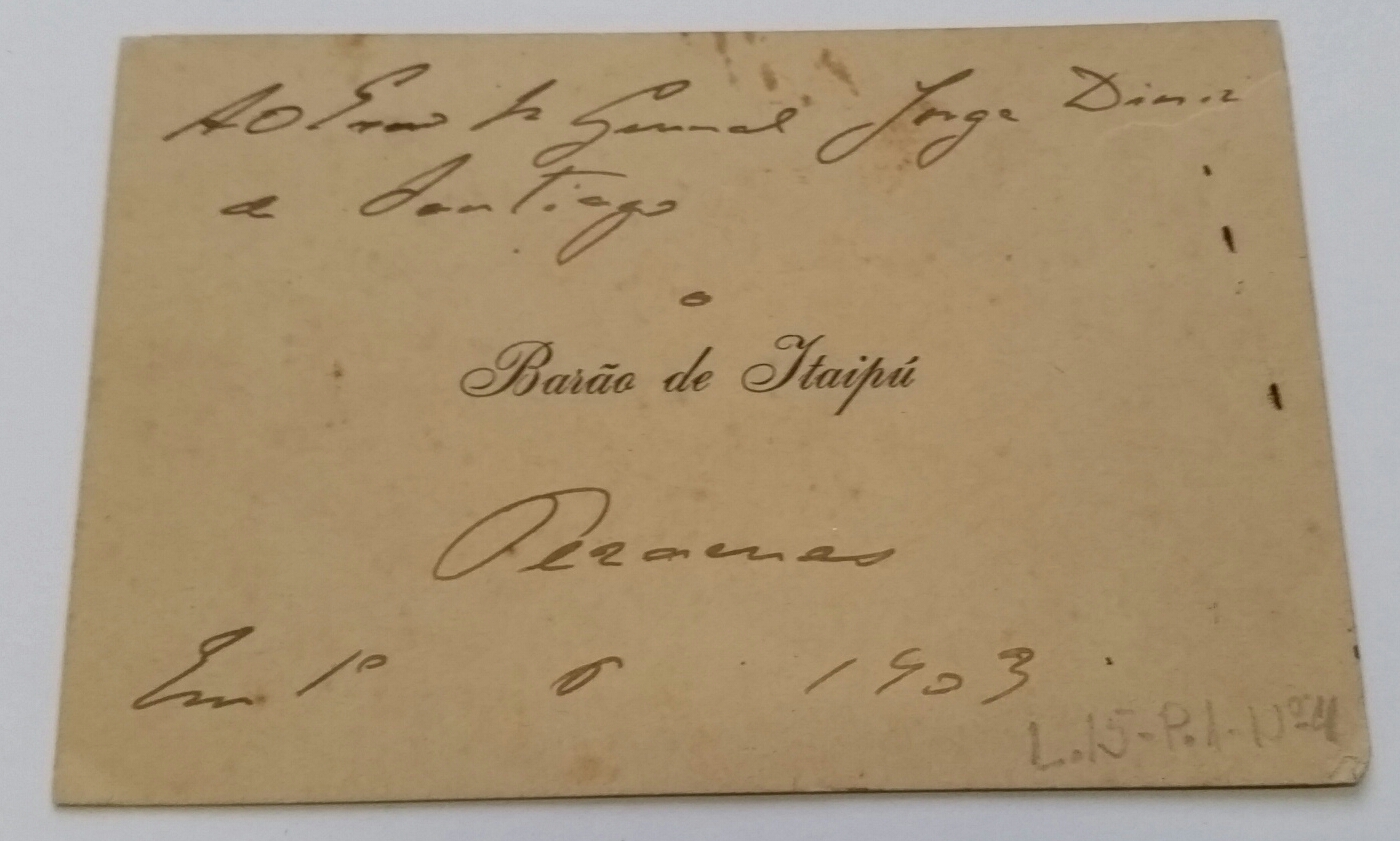 Ao Exmo Sr General Jorge Diniz
de Santiago
o
Barão de Itaipú
Pezames
Em 1º 6 1903
L.15-P.1-Nº4